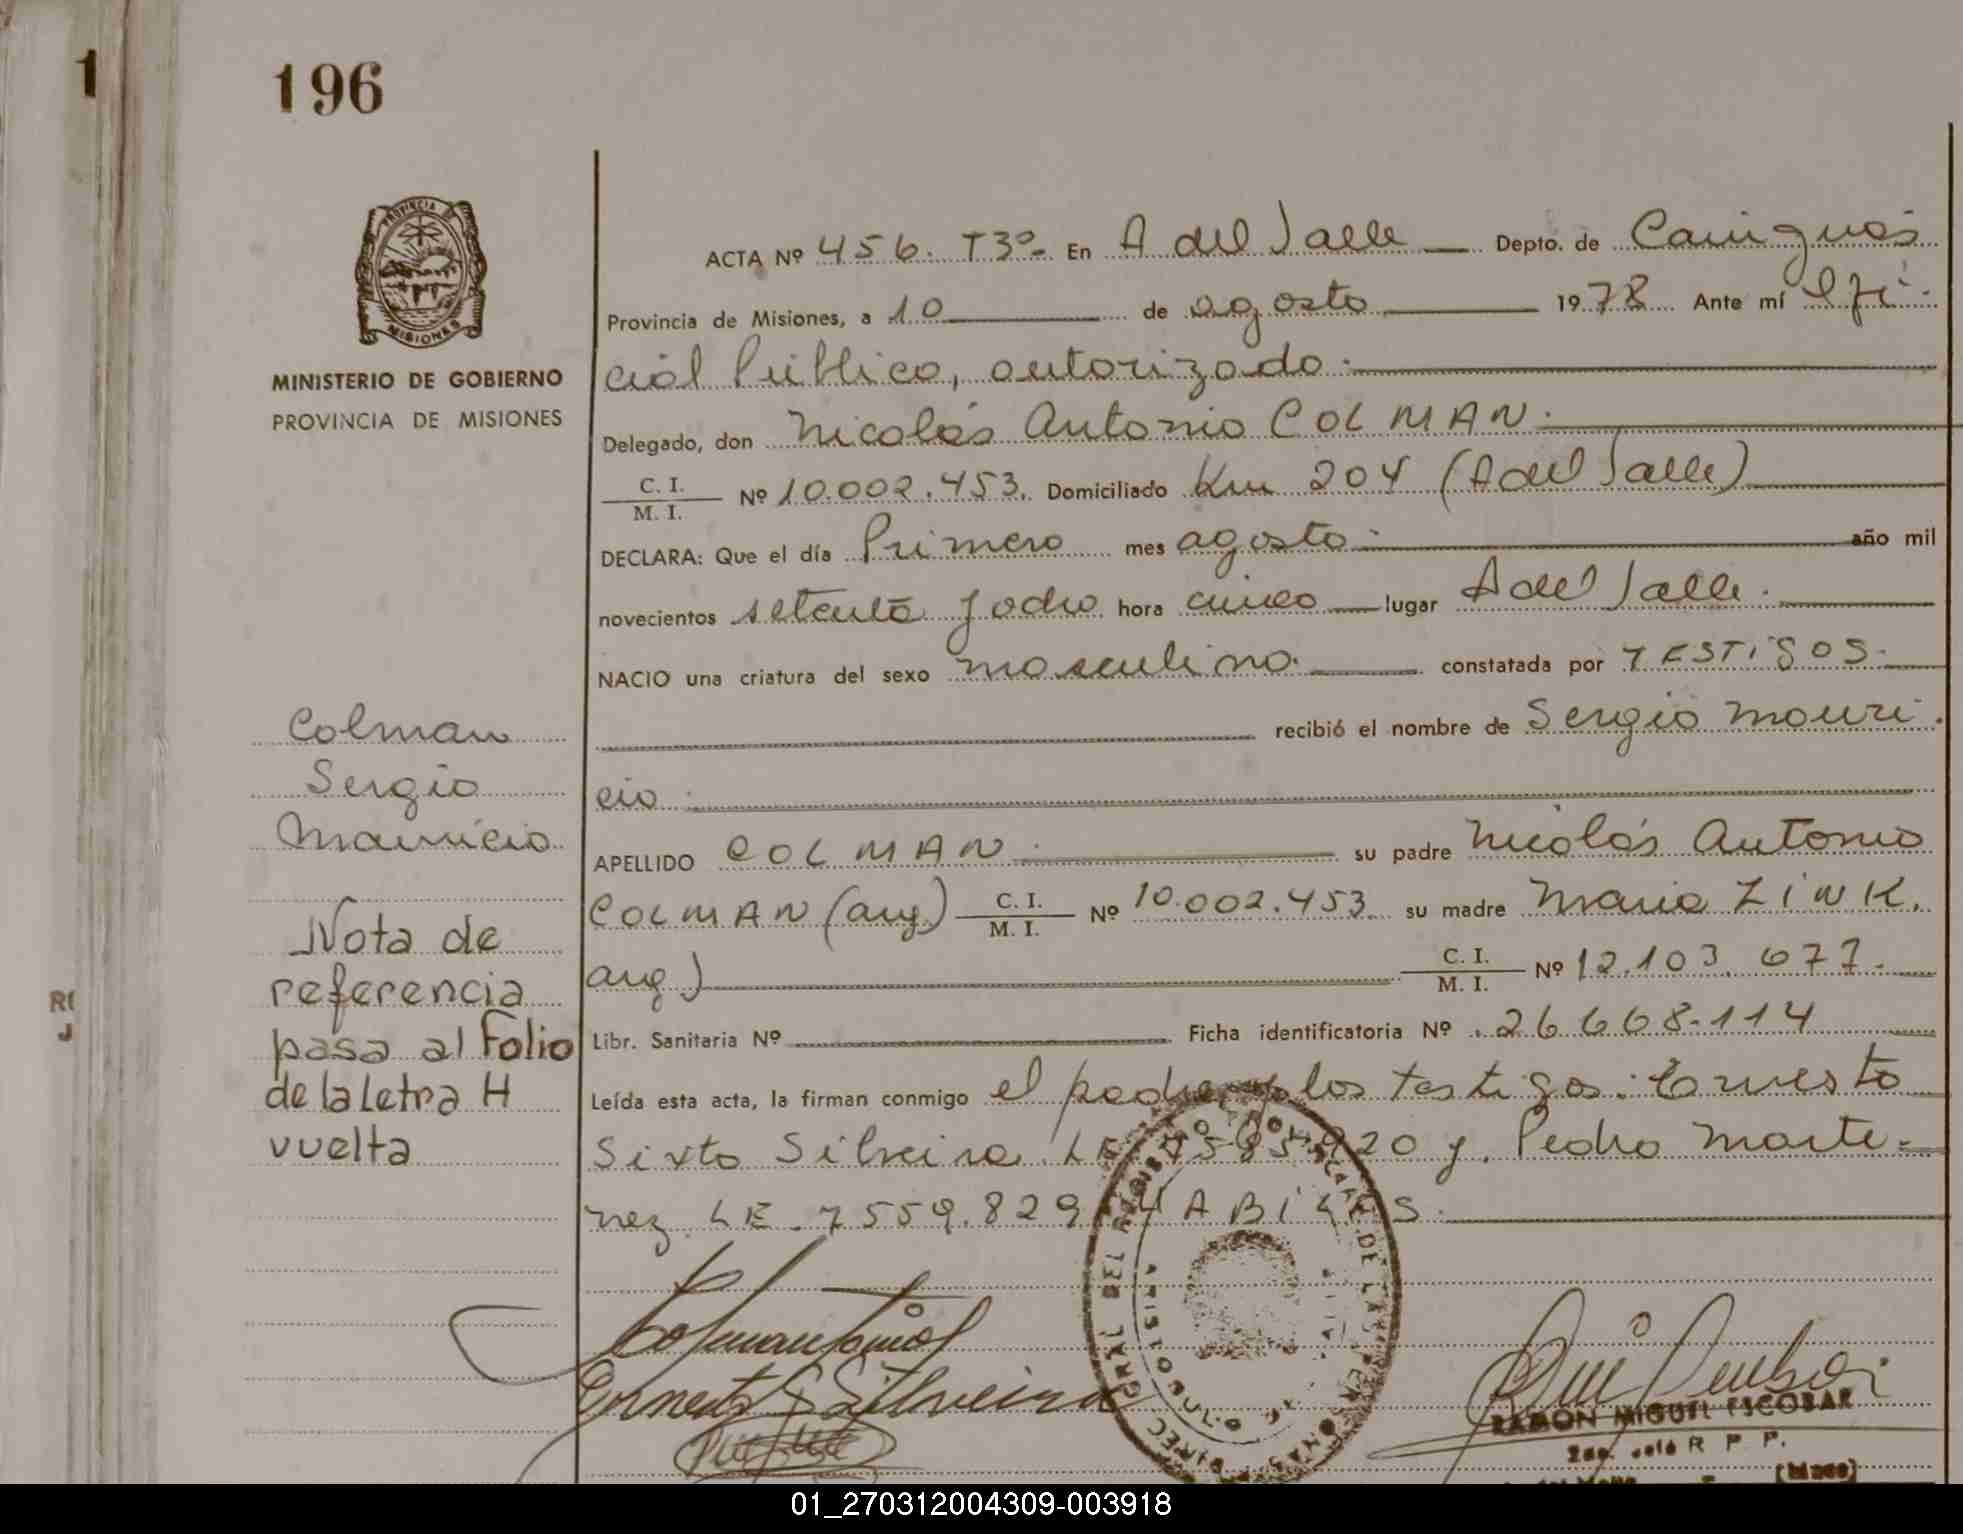 1
196
PROVINCIA DE MISIONES
MINISTERIO DE GOBIERNO
PROVINCIA DE MISIONES
ACTA Nº 456. T3º- En A del Valle Depto. de Cainguás
Provincia de Misiones, a 10 de agosto 1978 Ante mí Ofi-
cial Público, autorizado.
Delegado, don Nicolás Antonio COLMAN.
C. I.
M. I. Nº 10.002.453. Domiciliado Km 204 (A del Valle)
DECLARA: Que el día Primero mes agosto año mil
novecientos setenta y ocho hora cinco lugar A del Valle.
NACIO una criatura del sexo masculino. constatada por TESTIGOS.
recibió el nombre de Sergio Mauri-
cio.
APELLIDO COLMAN. su padre Nicolás Antonio
COLMAN (arg) C. I.
M. I. Nº 10.002.453. su madre Maria ZINK.
arg) C. I.
M. I. Nº 12.103.677.
Libr. Sanitaria Nº Ficha identificatoria Nº 26.668.114
Leída esta acta, la firman conmigo el padre y los testigos: Ernesto
Sixto Silveira. LE y. Pedro Marti-
nez LE. 7559.829 HABILES.
Colman
Sergio
Mauricio
Nota de
referencia
pasa al Folio
de la Letra H
vuelta
Ernesto S Silveira
RAMON MIGUEL ESCOBAR
R P P.
01_270312004309-003918